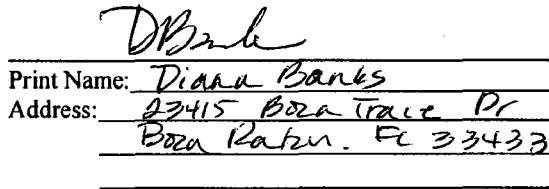 DBanks
Print Name: Diana Banks
Address: 23415 Boca Trace Dr
Boca Raton. FL 33433